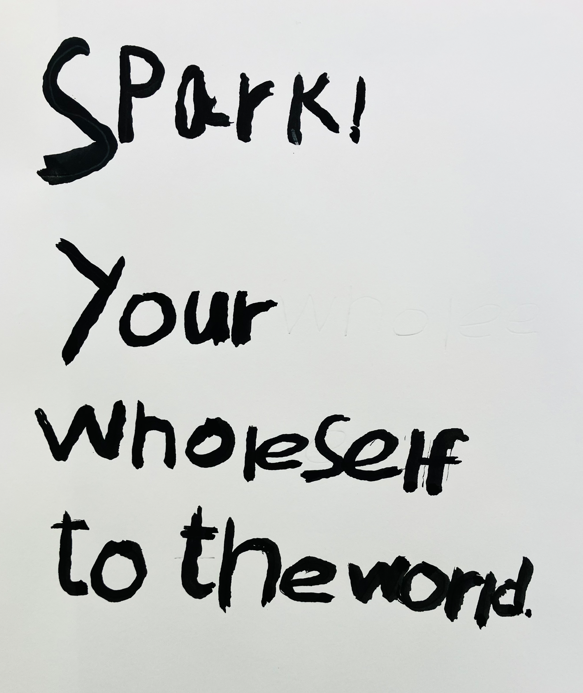 Spark!
Your wholee
wholeself
to the world.